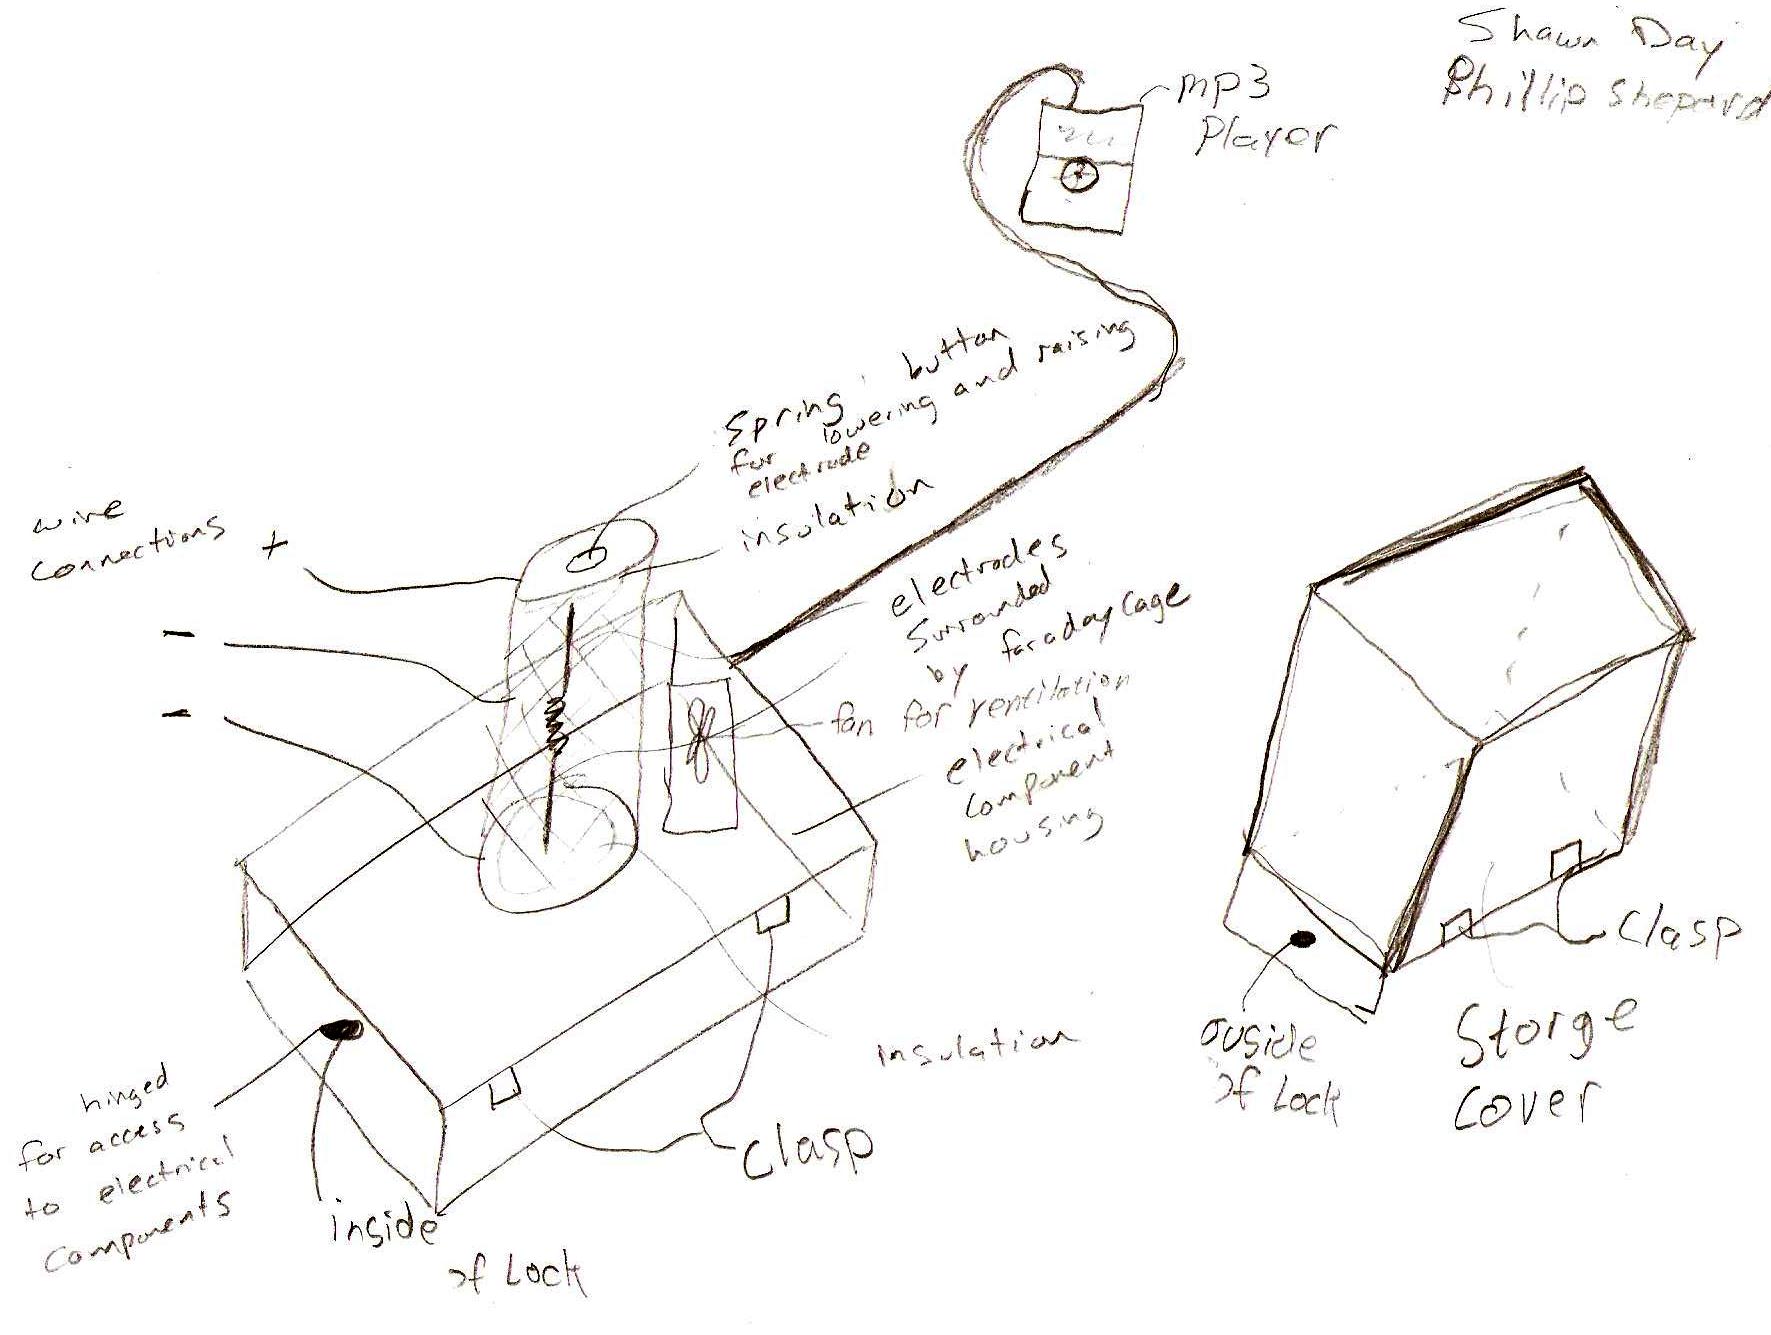 Shawn Day
Phillip Shepard
mp3
Player
Spring, button
for lowering and raising
electrode
insulation
wire
connections +
-
-
electrodes
surrounded
by faraday cage
fan for ventilation
electrical
component
housing
insulation
clasp
hinged
for access
to electrical
components
inside
of Lock
clasp
ouside
of Lock
Storge
cover